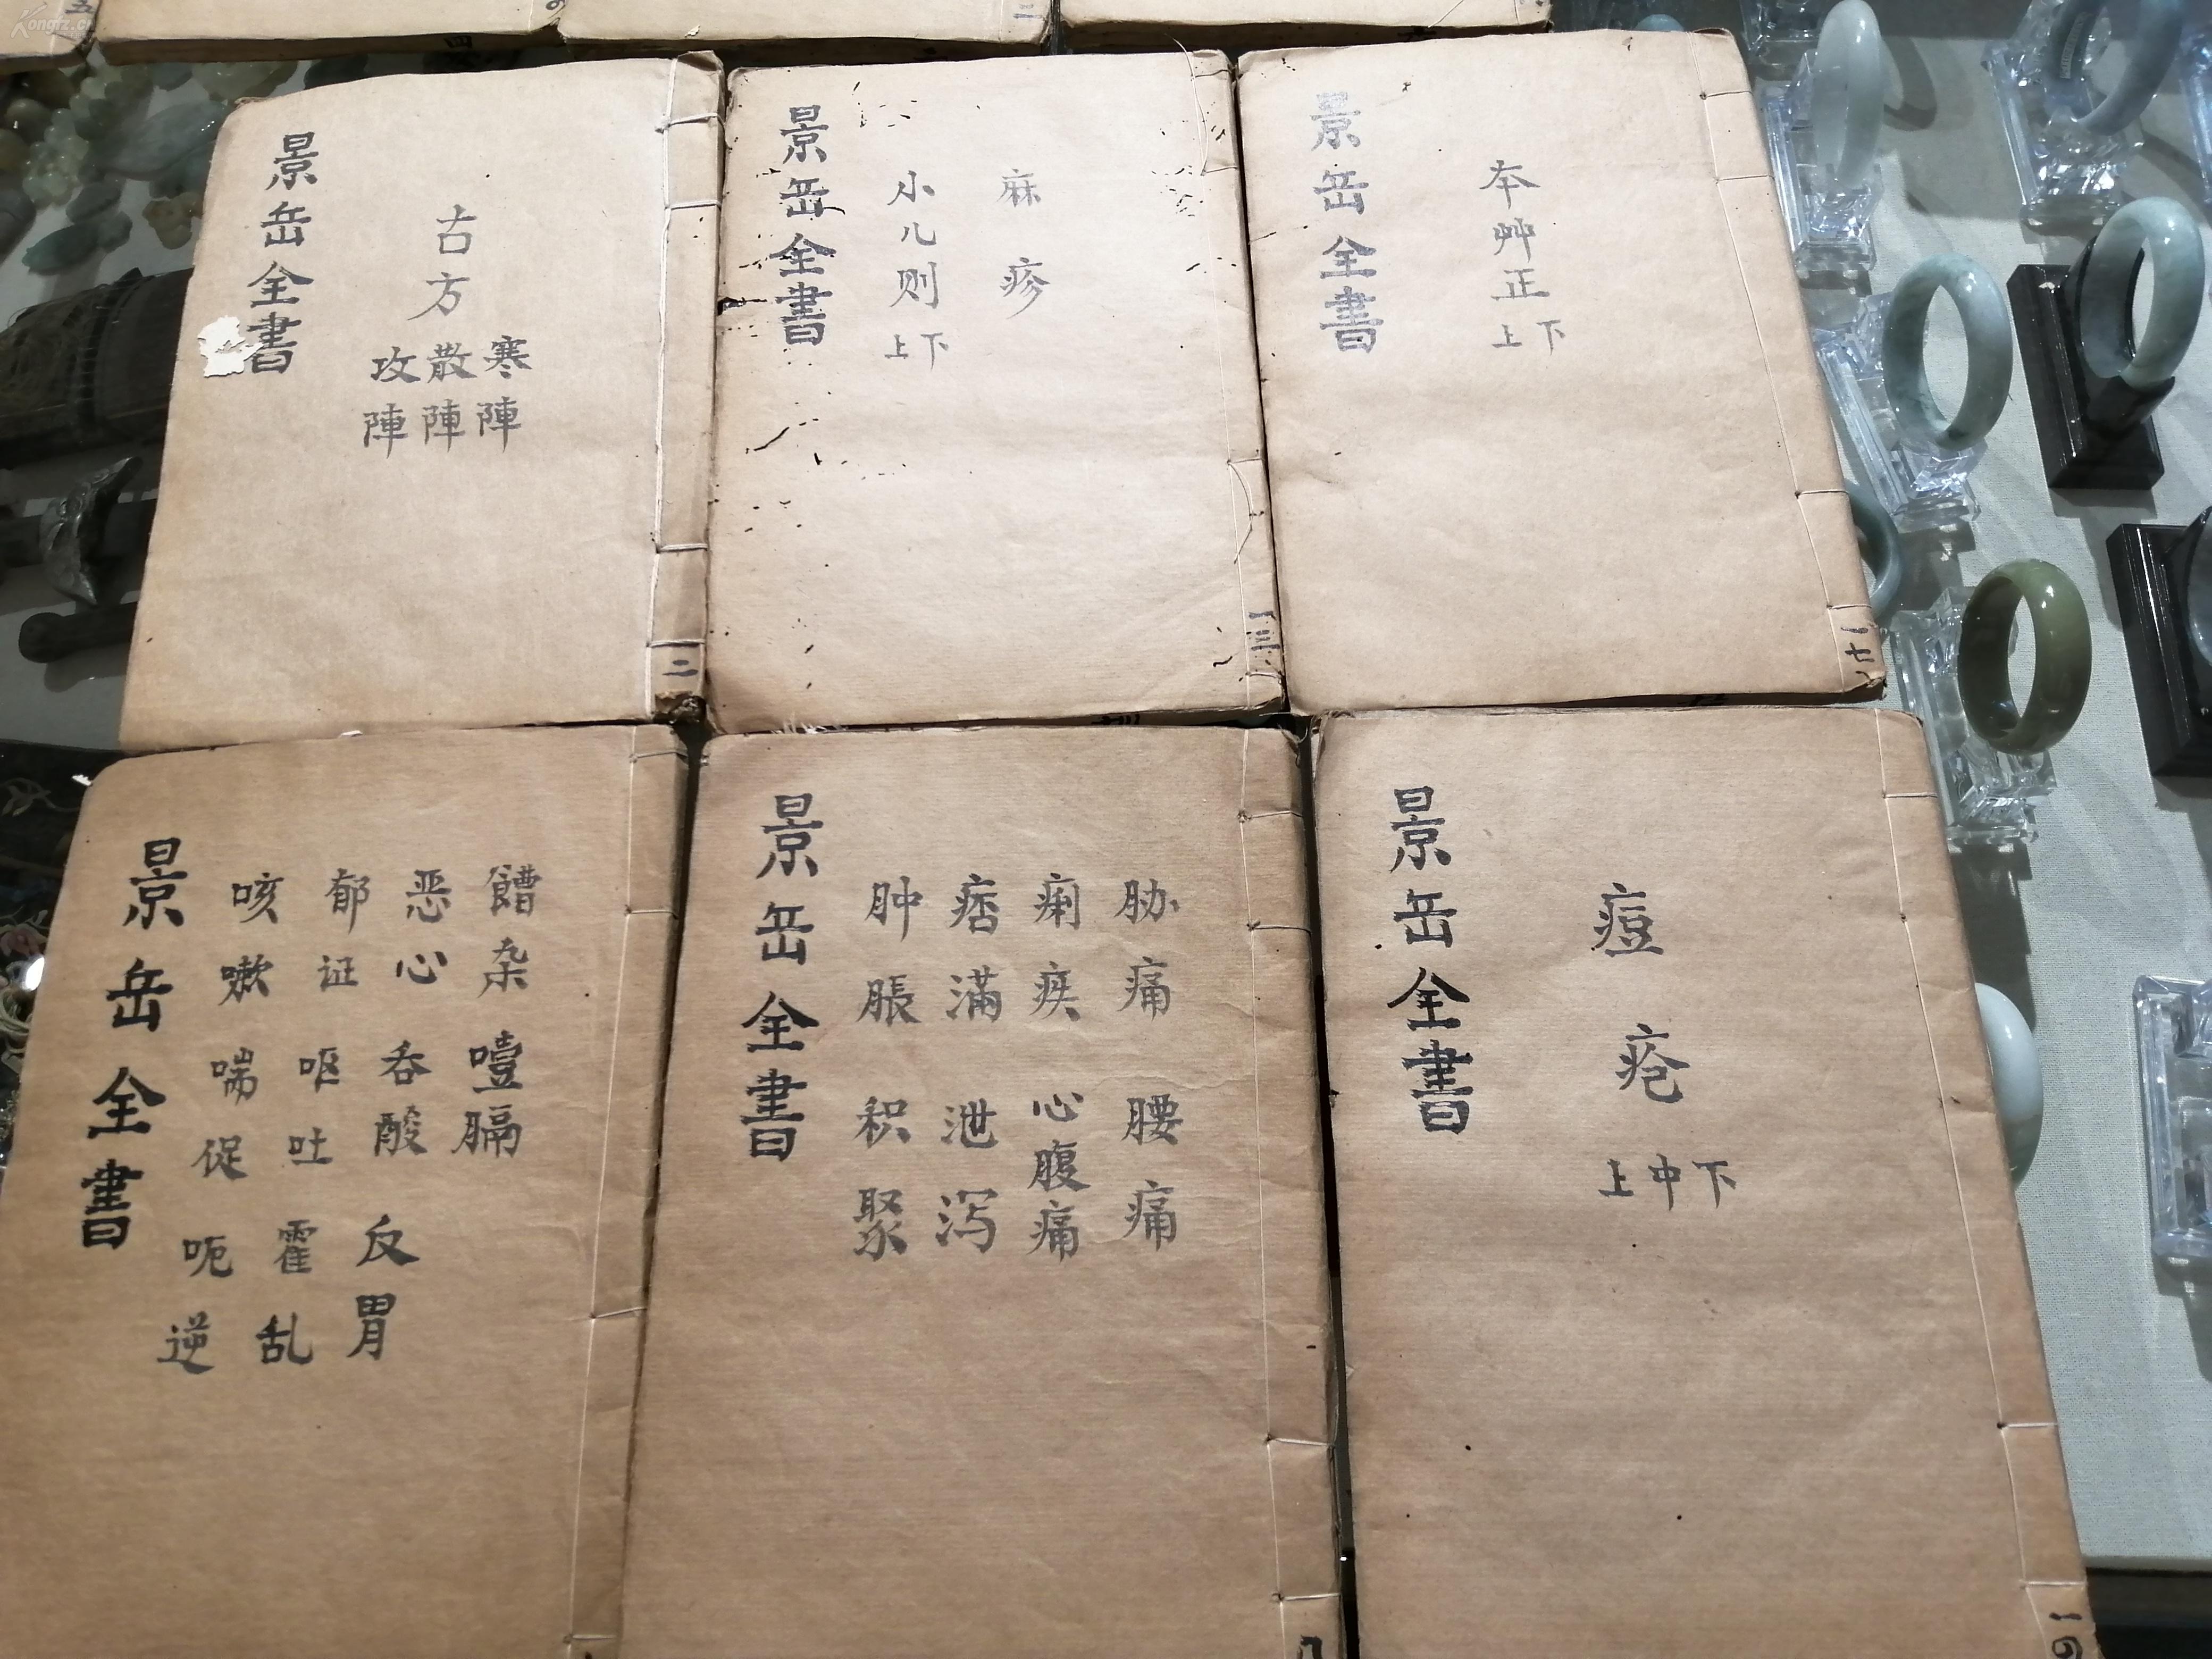 Kongfz.c
五
三
四
景岳全書
古方
寒陣
散陣
攻陣
二
景岳全書
麻疹
小儿则
上下
一三
景岳全書
本艸正
上下
一七
景岳全書
饐杂 噎膈
恶心 吞酸 反胃
郁证 呕吐 霍乱
咳嗽 喘促 呃逆
景岳全書
胁痛 腰痛
痢疾 心腹痛
痞满 泄泻
肿胀 积聚
八
景岳全書
痘疮
上中下
一四